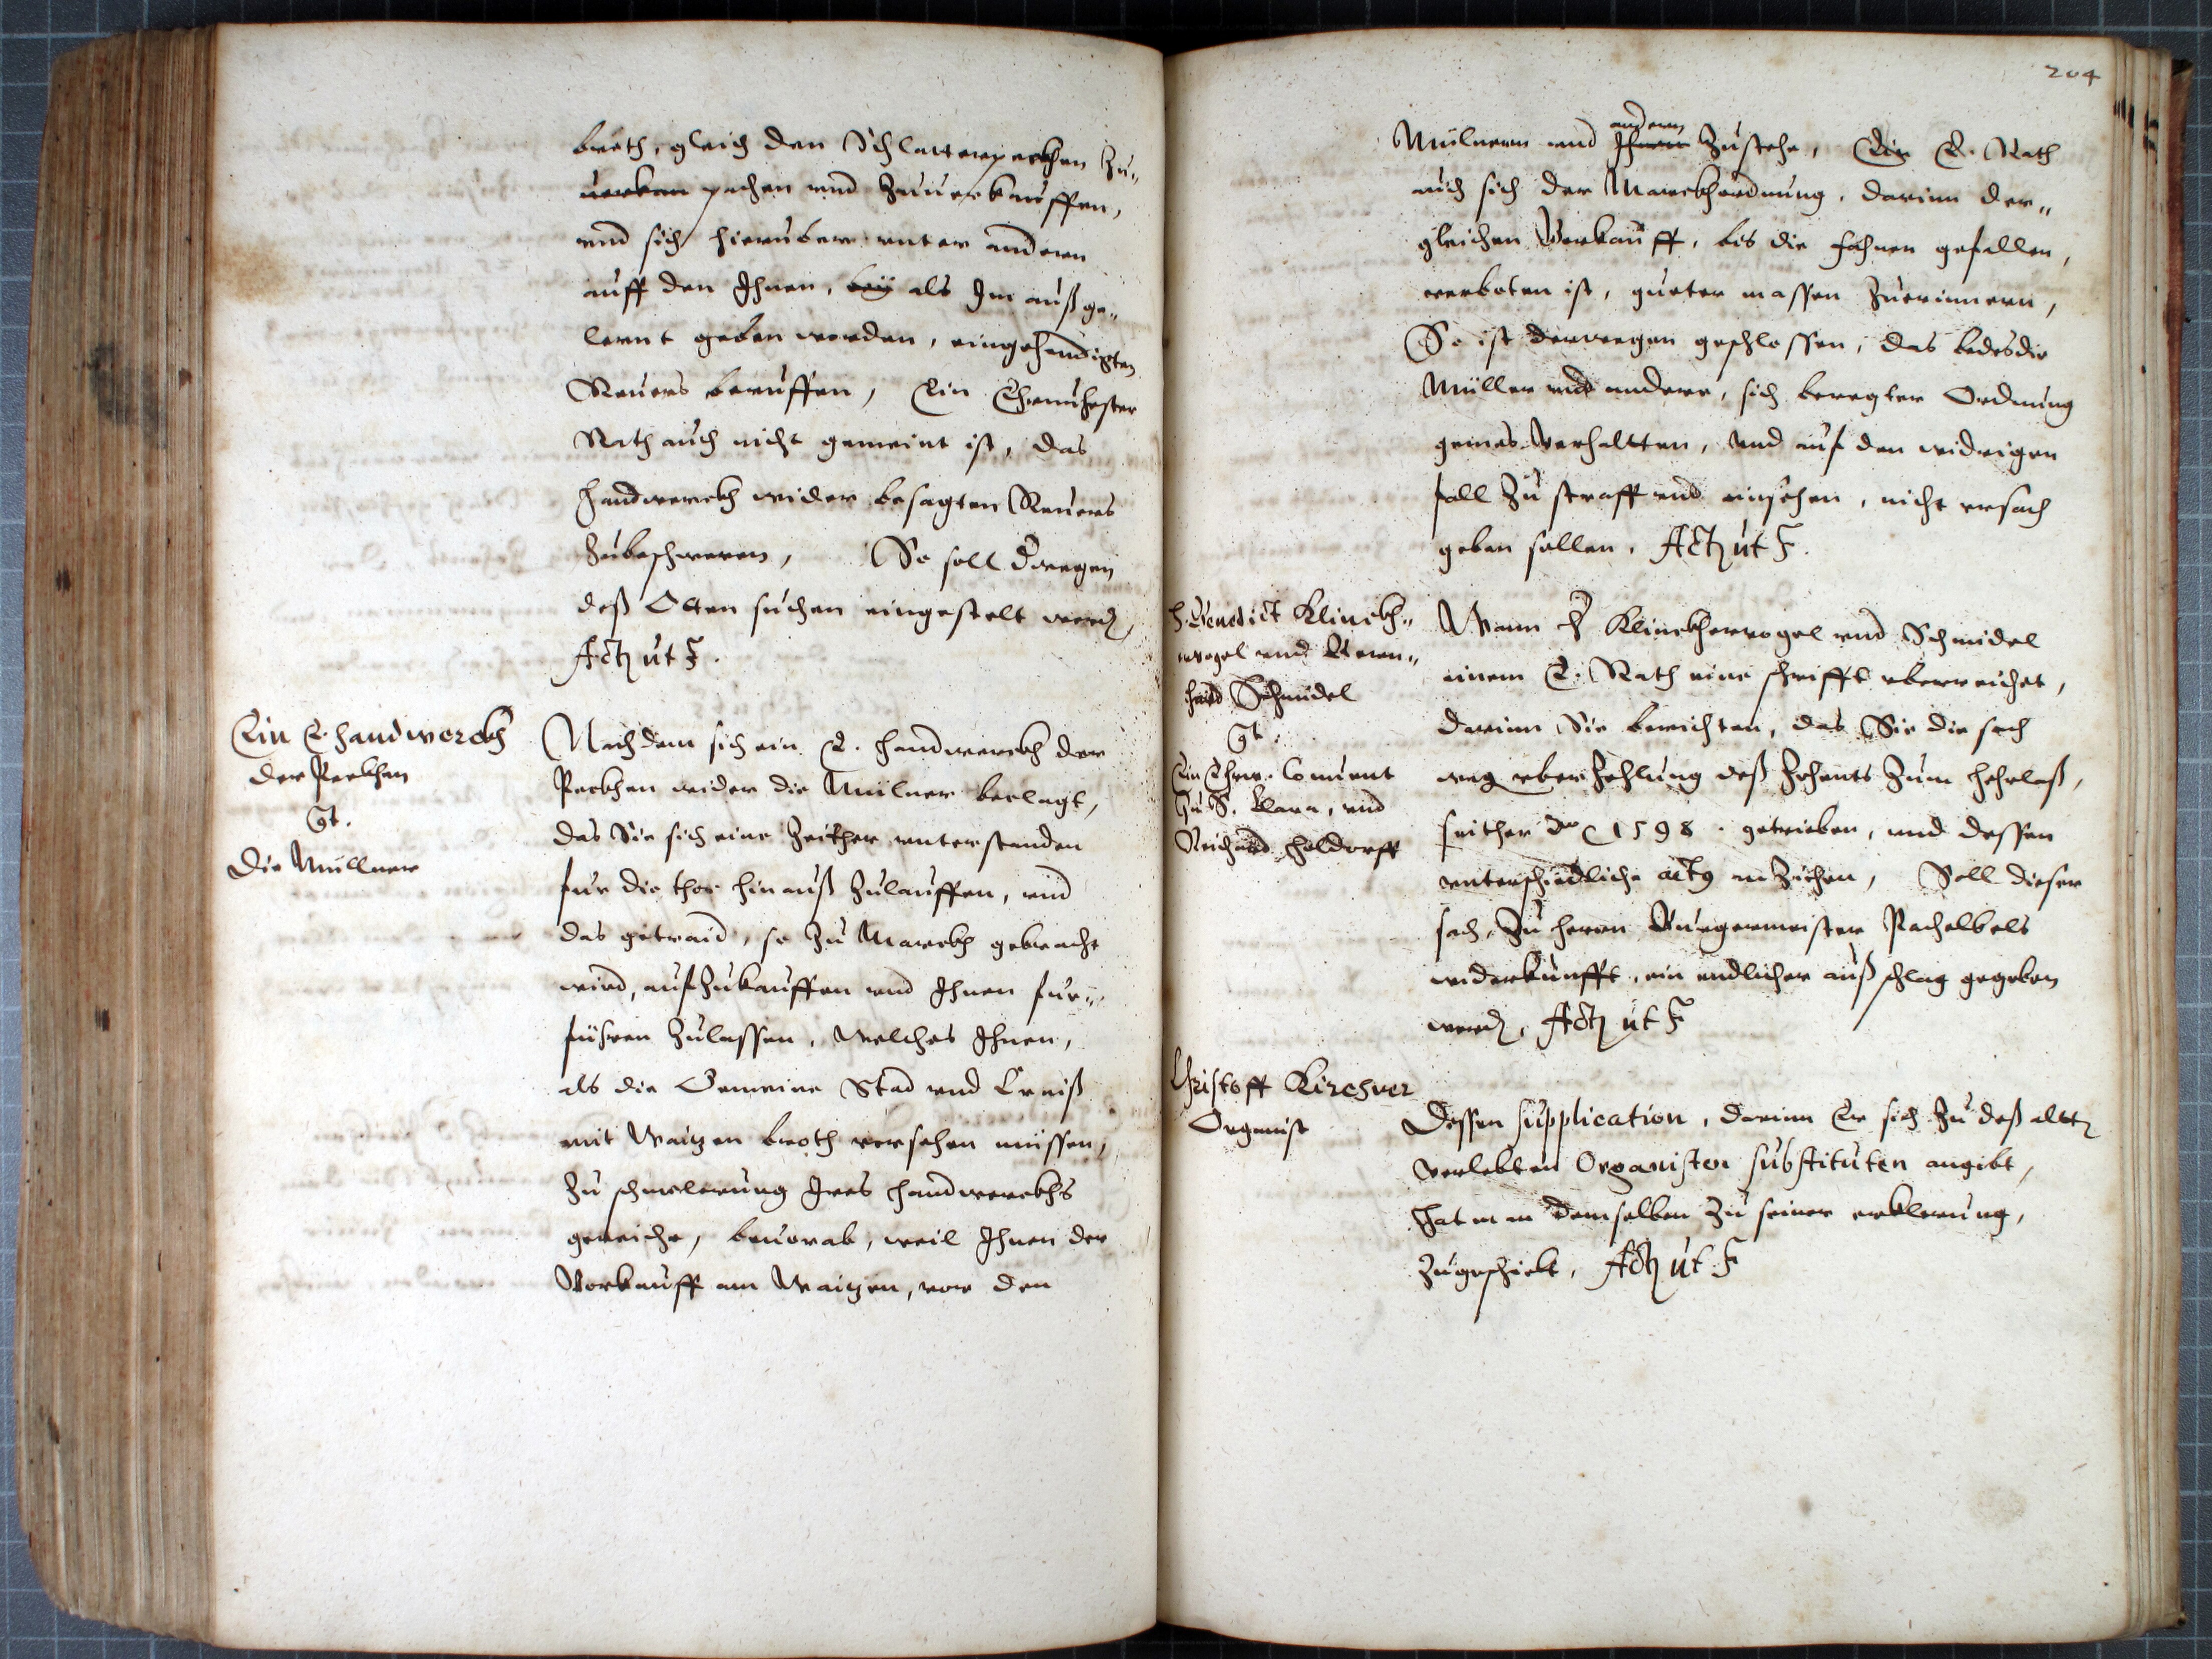 broth, gleich den Schlatterpeckhen Zu„
uerkau pachen vnd Zuuerkauffen,
vnd sich hierüber vnter anderm
auff den Ihnen, beÿ als Im außge„
lernt geben worden, eingehendigten
Reuers beruffen, Ein Ehrnuhester
Rath auch nicht gemeint ist, das
Handwerckh wider besagten Reuers
Zubeschweren, So soll derwegen
deß Otten suchen eingestelt werden,
Actum ut s.
Ein E. Handwerckh
der Peckhen
Ct.
Die Müllner
Nachdem sich ein E. Handwerckh der
Peckhen wider die Mülner beclagt,
das Sie sich eine Zeither vnterstanden
für die thor hinauß Zulauffen, vnd
das getraid, so Zu Marckh gebracht
wird, aufZukauffen vnd Ihnen für„
führen Zulassen, Welches Ihnen,
als die Gemeine Stad vnd Craiß
mit Waitzen broth versehen müssen,
Zu schmelerung Ires Handwerckhs
gereiche, beuorab, weil Ihnen der
Vorkauff am Waitzen, vor den
204
Mülnern und Ihnen anderen Zustehe, Ein E. Rath
auch sich der Marckhordnung, darinn der„
gleichen Vorkauff, bis die fahnen gefallen,
verboten ist, gueter massen Zuerinnern,
So ist derwegen geschlossen, das bedes die
Müller vnd andere, sich beregter Ordnung
gemes verhaltten, vnd auf den widrigen
fall Zu straff vnd einsehen, nicht vrsach
geben sollen. Actum ut s.
H. Benedict Klinckh„
vogel vnd Bern„
hard Schmidel
Ct.
Ein Ehrw. Conuent
Zu S. Clara, vnd
Reichard Haldorff
Wann H Klinckhervogel vnd Schmidel
einem E. Rath eine schrifft vberreichet,
darinn Sie berichten, das Sie die sach
weg vberZehlung deß Zehents Zum Hehelaß,
seither Ao 1598. getrieben, vnd dessen
vnterschiedliche acta anZiehen, Soll dieser
sach, Zu herrn Burgermeister Pachelbels
widerkunfft, ein endlicher außschlag gegeben
werden, Actum ut s
Christoff Kirchner
Organist
Dessen supplication, darinn Er sich Zu deß alten
verlebten Organisten substituten angibt,
Hat man demselben Zu seiner erklerung,
Zugeschickt, Actum ut. s